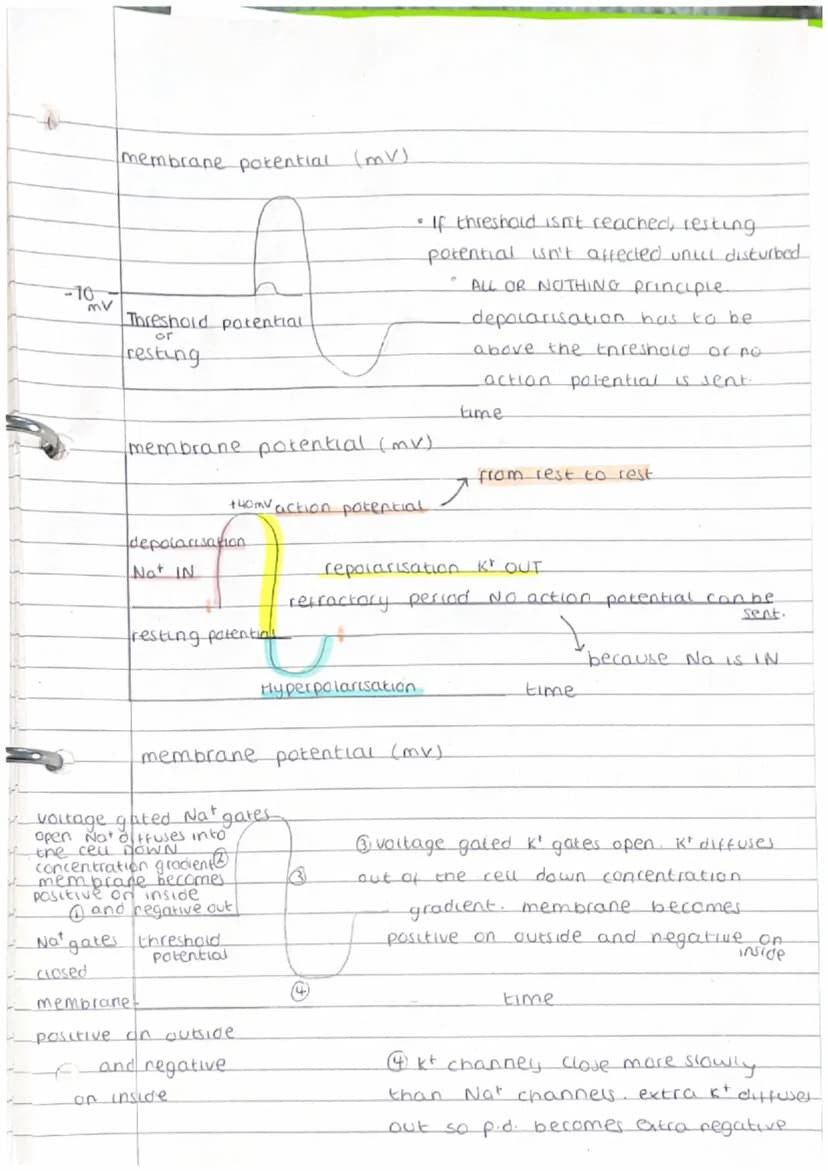 membrane potential (mV)
• If threshold isn't reached, resting
potential isn't affected until disturbed
-70
mV
• ALL OR NOTHING principle
Threshold potential
or
resting
depolarisation has to be
above the threshold or no
action potential is sent.
time
membrane potential (mV)
from rest to rest
+40mV action potential
depolarisation
Na⁺ IN
repolarisation K⁺ OUT
refractory period NO action potential can be
sent.
resting potential
because Na is IN
Hyperpolarisation
time
membrane potential (mV)
voltage gated Na⁺ gates
open Na⁺ diffuses into
the cell DOWN
concentration gradient ②
membrane becomes
positive on inside
① and negative out
③ voltage gated K⁺ gates open. K⁺ diffuses
③
out of the cell down concentration
gradient. membrane becomes
positive on outside and negative on
inside
Na⁺ gates
closed
threshold
potential
④
time
membrane
positive on outside
and negative
on inside
④ K⁺ channels close more slowly
than Na⁺ channels. extra K⁺ diffuses
out so p.d. becomes extra negative